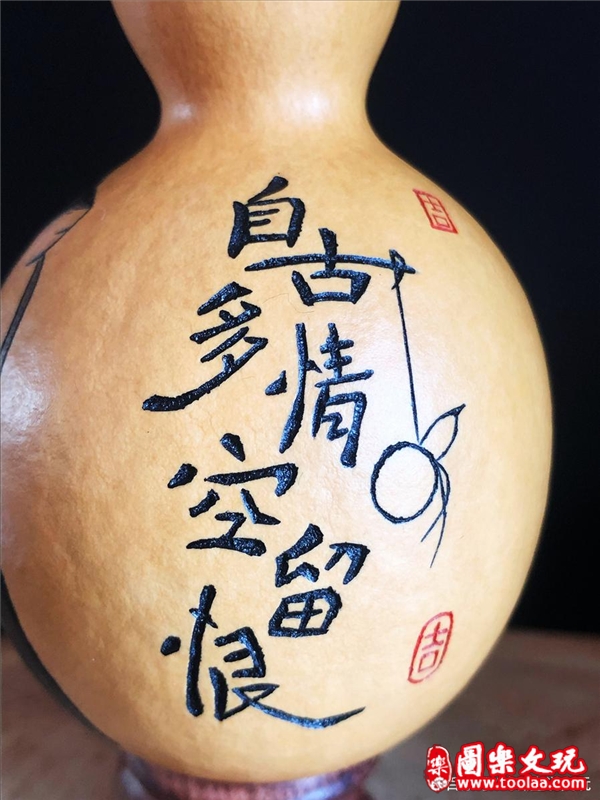 自古
多情
空留
恨
吉
吉
樂 圖樂文玩
www.toolaa.com